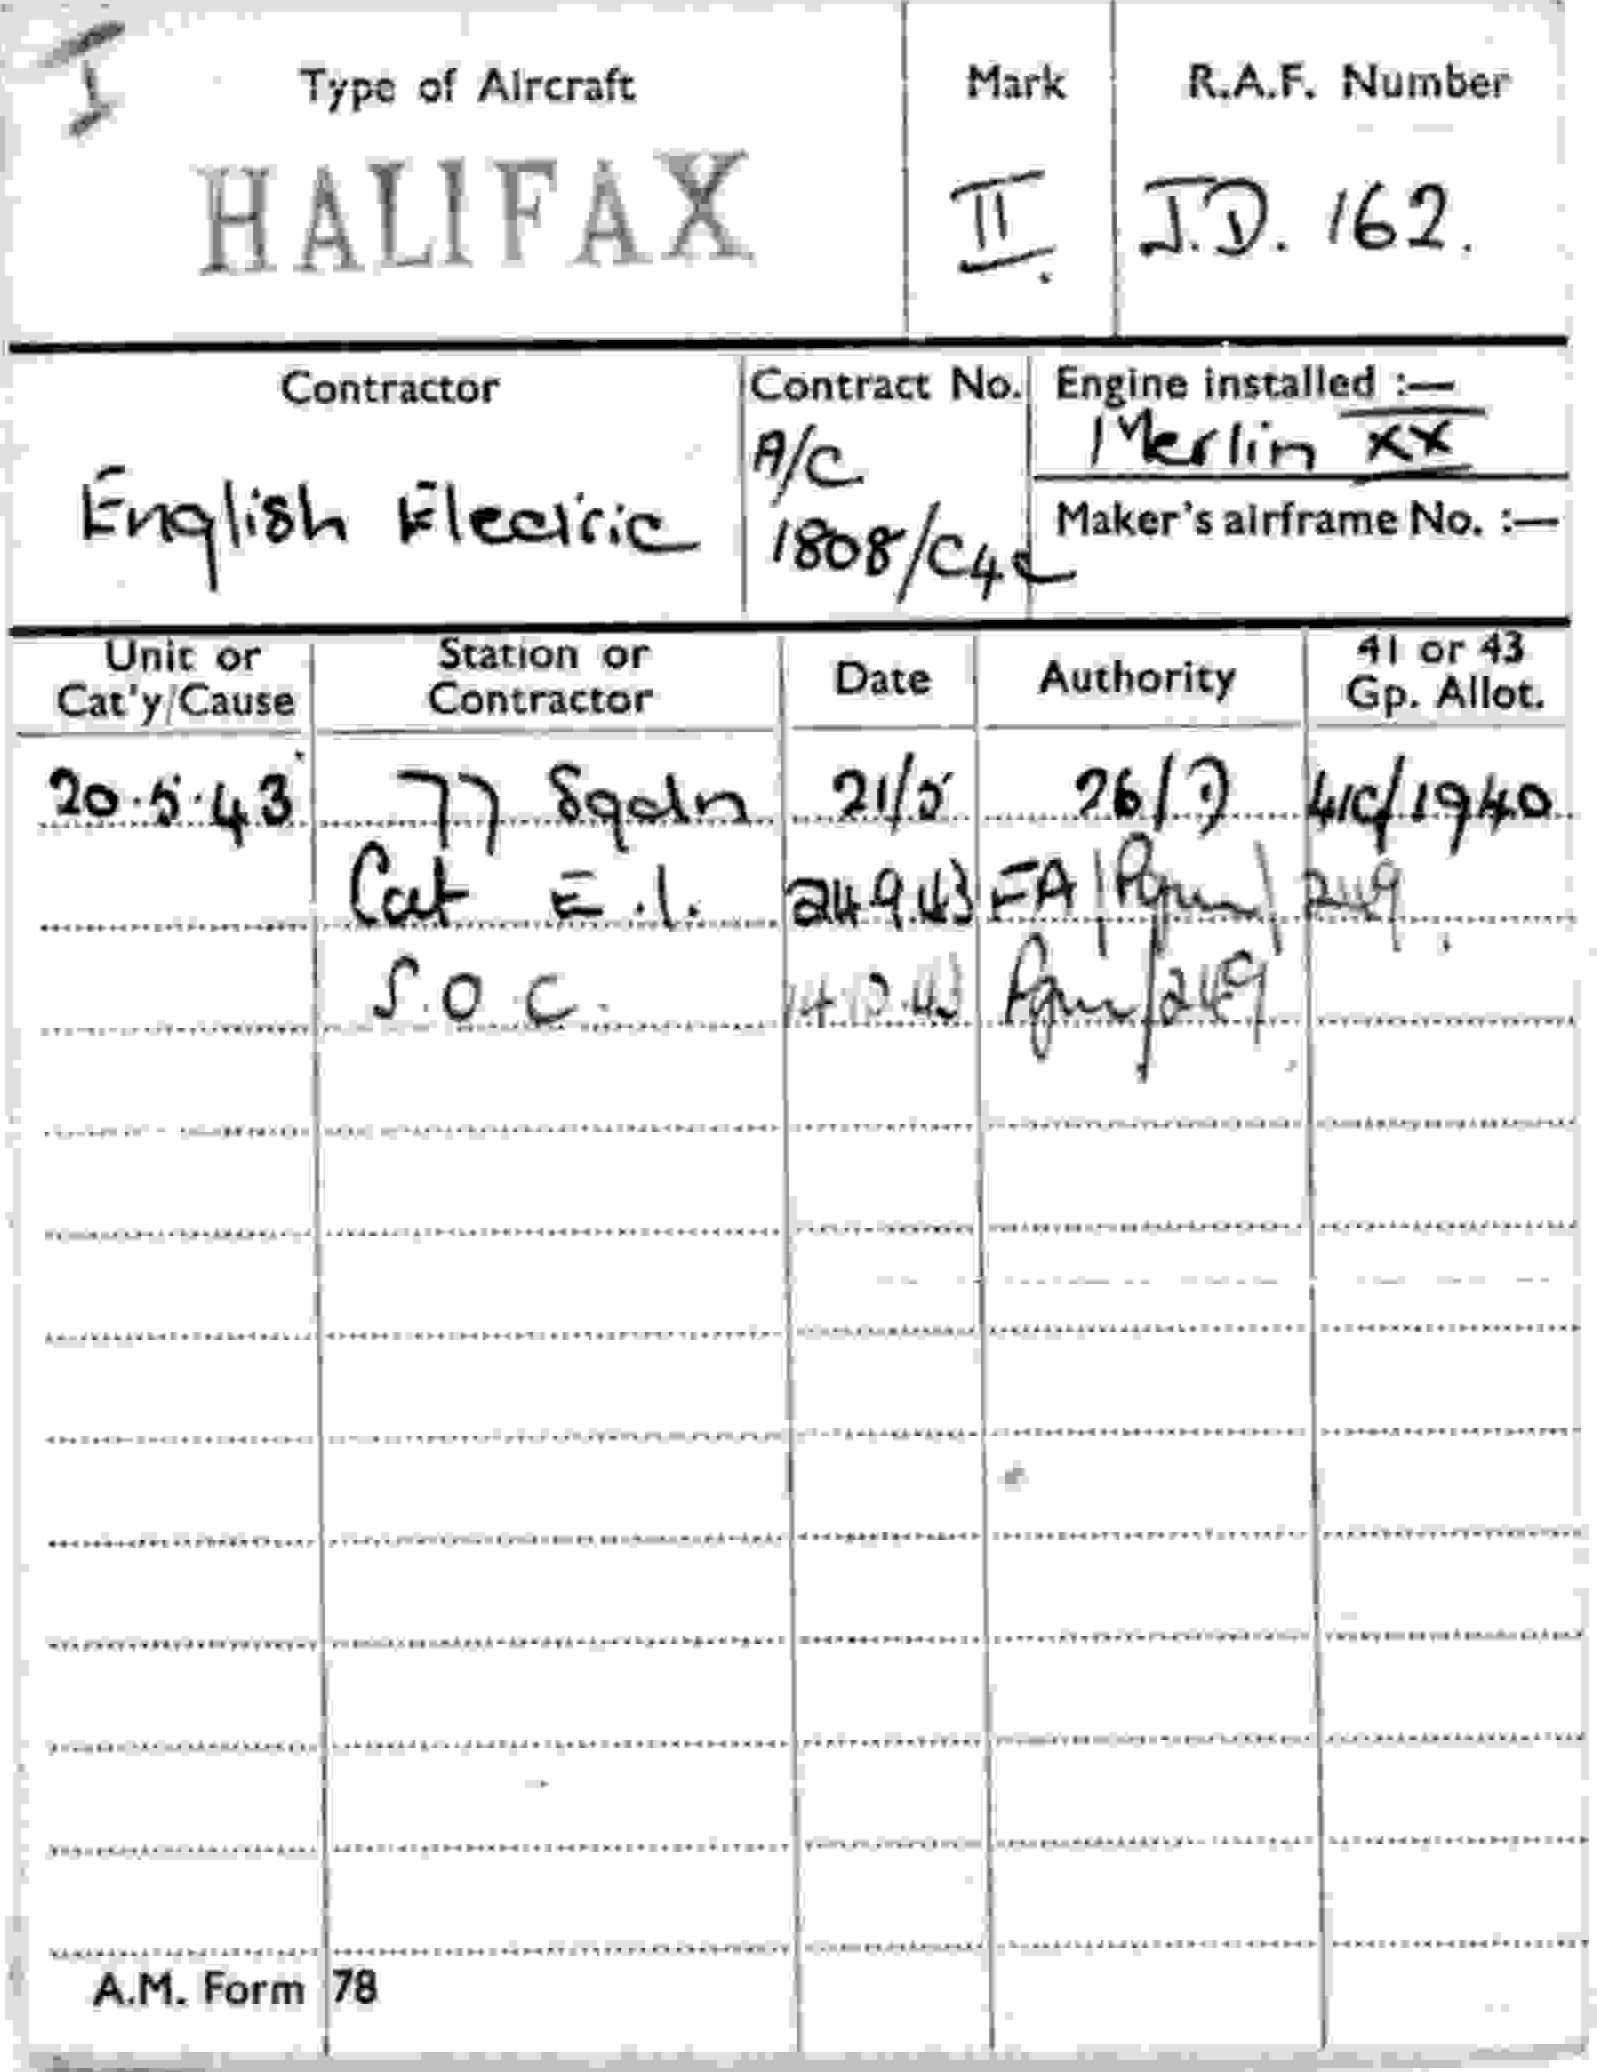 I
Type of Aircraft
HALIFAX
Mark
II.
R.A.F. Number
J.D. 162.
Contractor
English Electric
Contract No.
A/C
1808/C4c
Engine installed :—
Merlin XX
Maker's airframe No. :—
Unit or Cat'y/Cause
Station or Contractor
Date
Authority
41 or 43 Gp. Allot.
20.5.43 77 Sqdn 21/5 26/D 41G/1940
Cat E.1. 24.9.43 FA/ /249.
S.O.C. .43 /249
A.M. Form 78